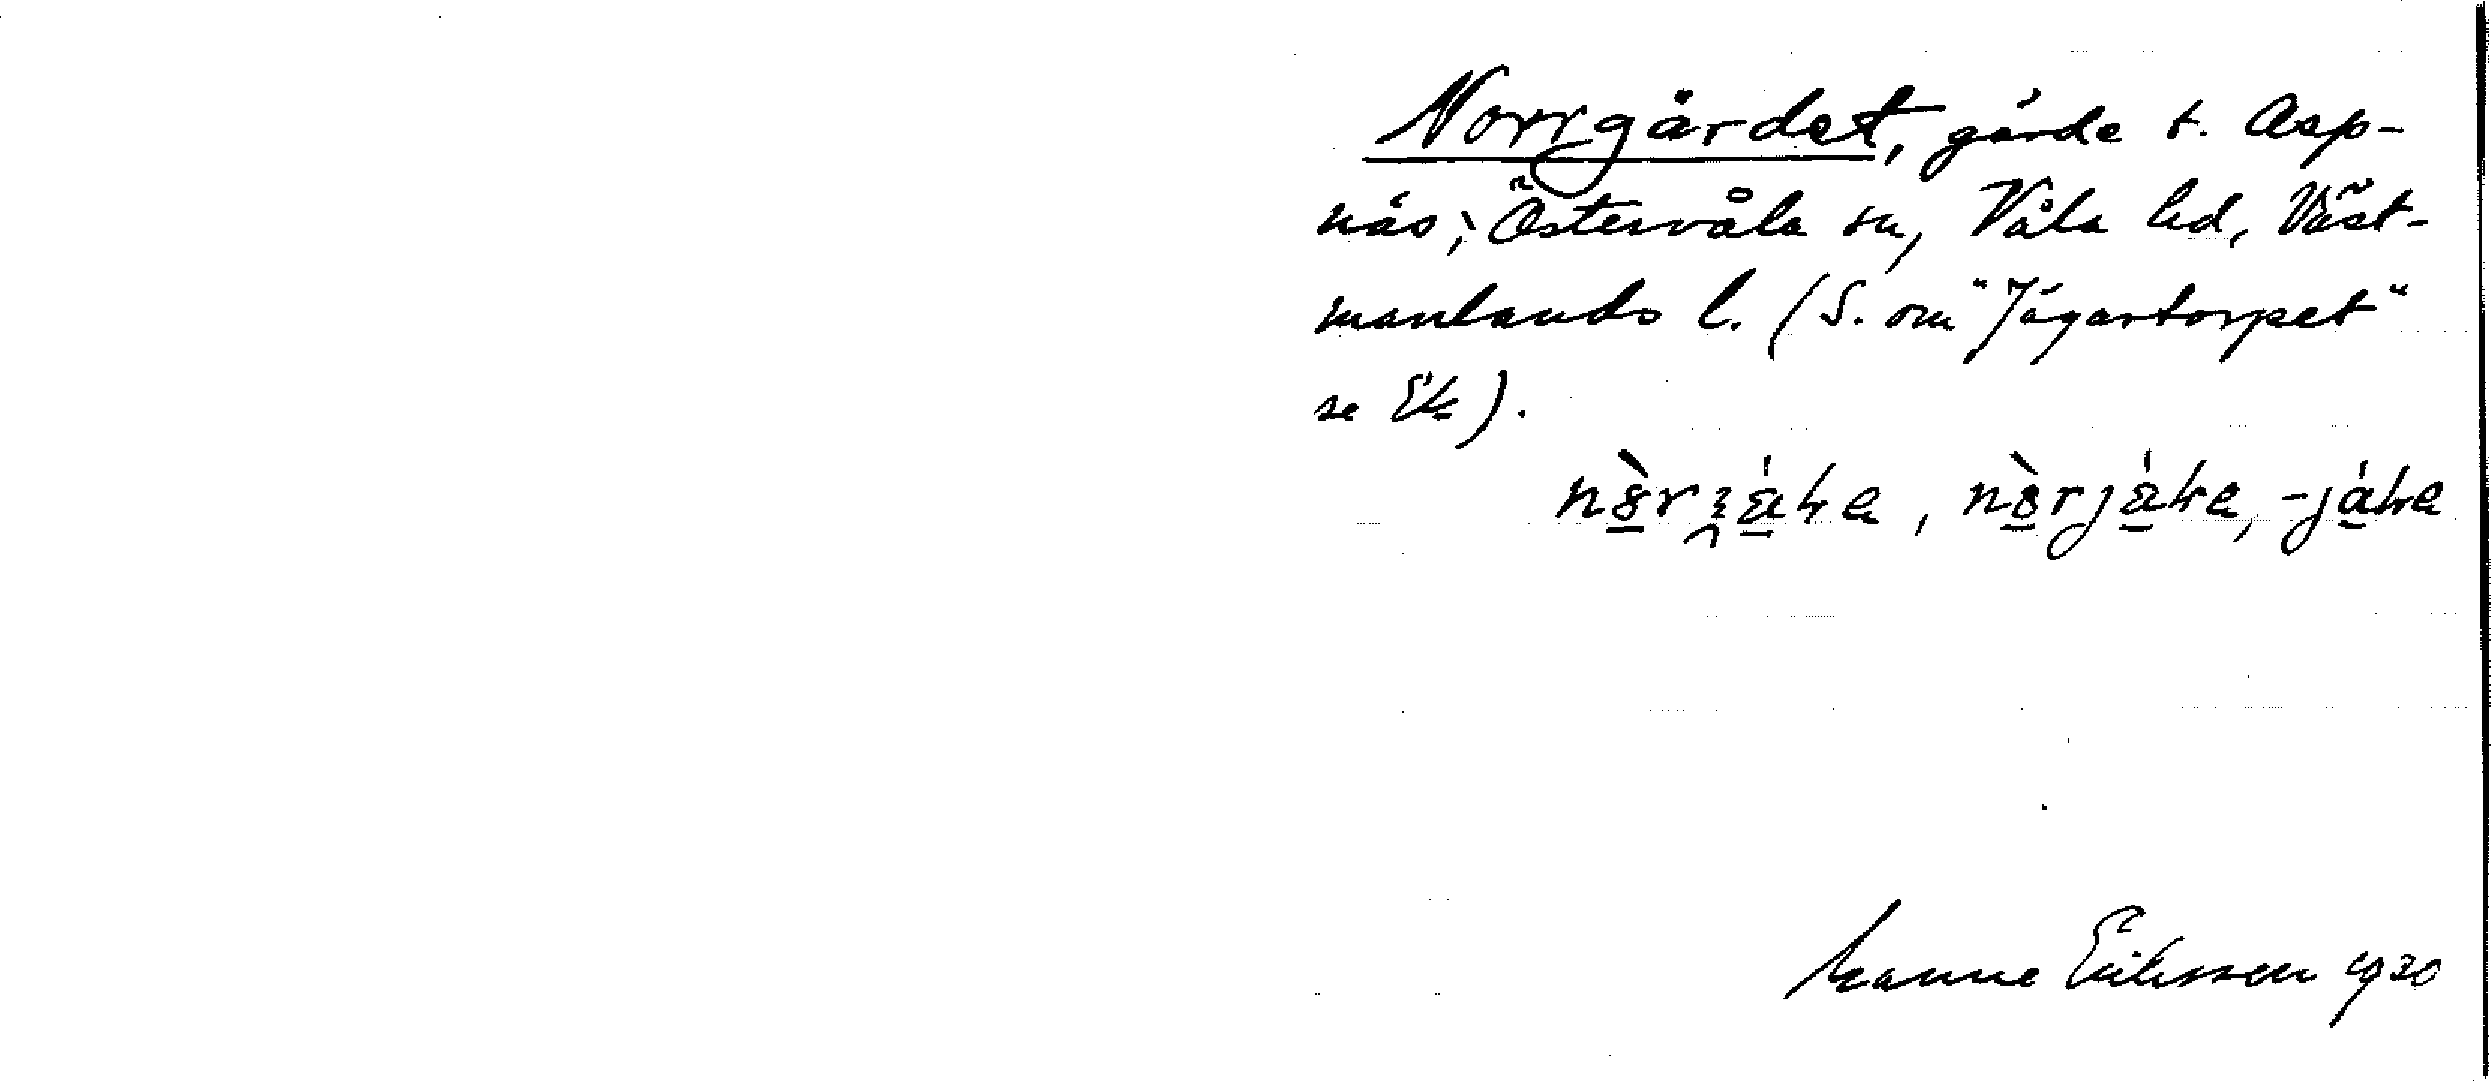 Norrgärdet, gärde t. Asp-
näs, Östervåla sn, Våla hd, Väst-
manlands l. (S. om "Jägartorpet"
se Ek).
Manne Eriksson 1930